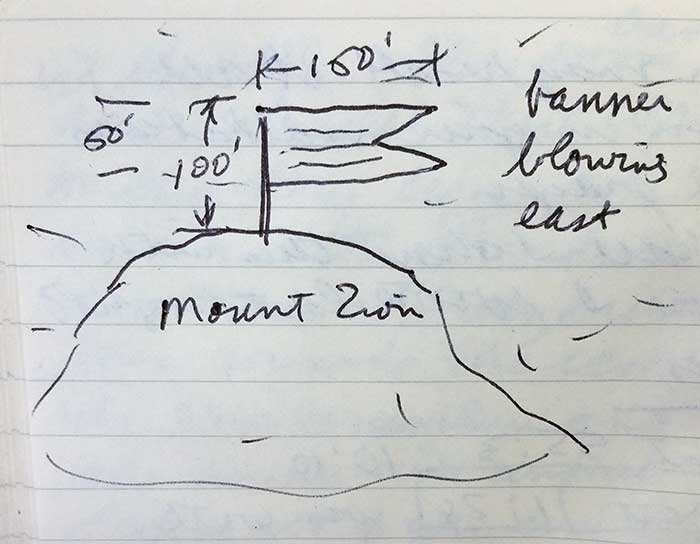 160'
60'
100'
banner
blowing
east
Mount Zion